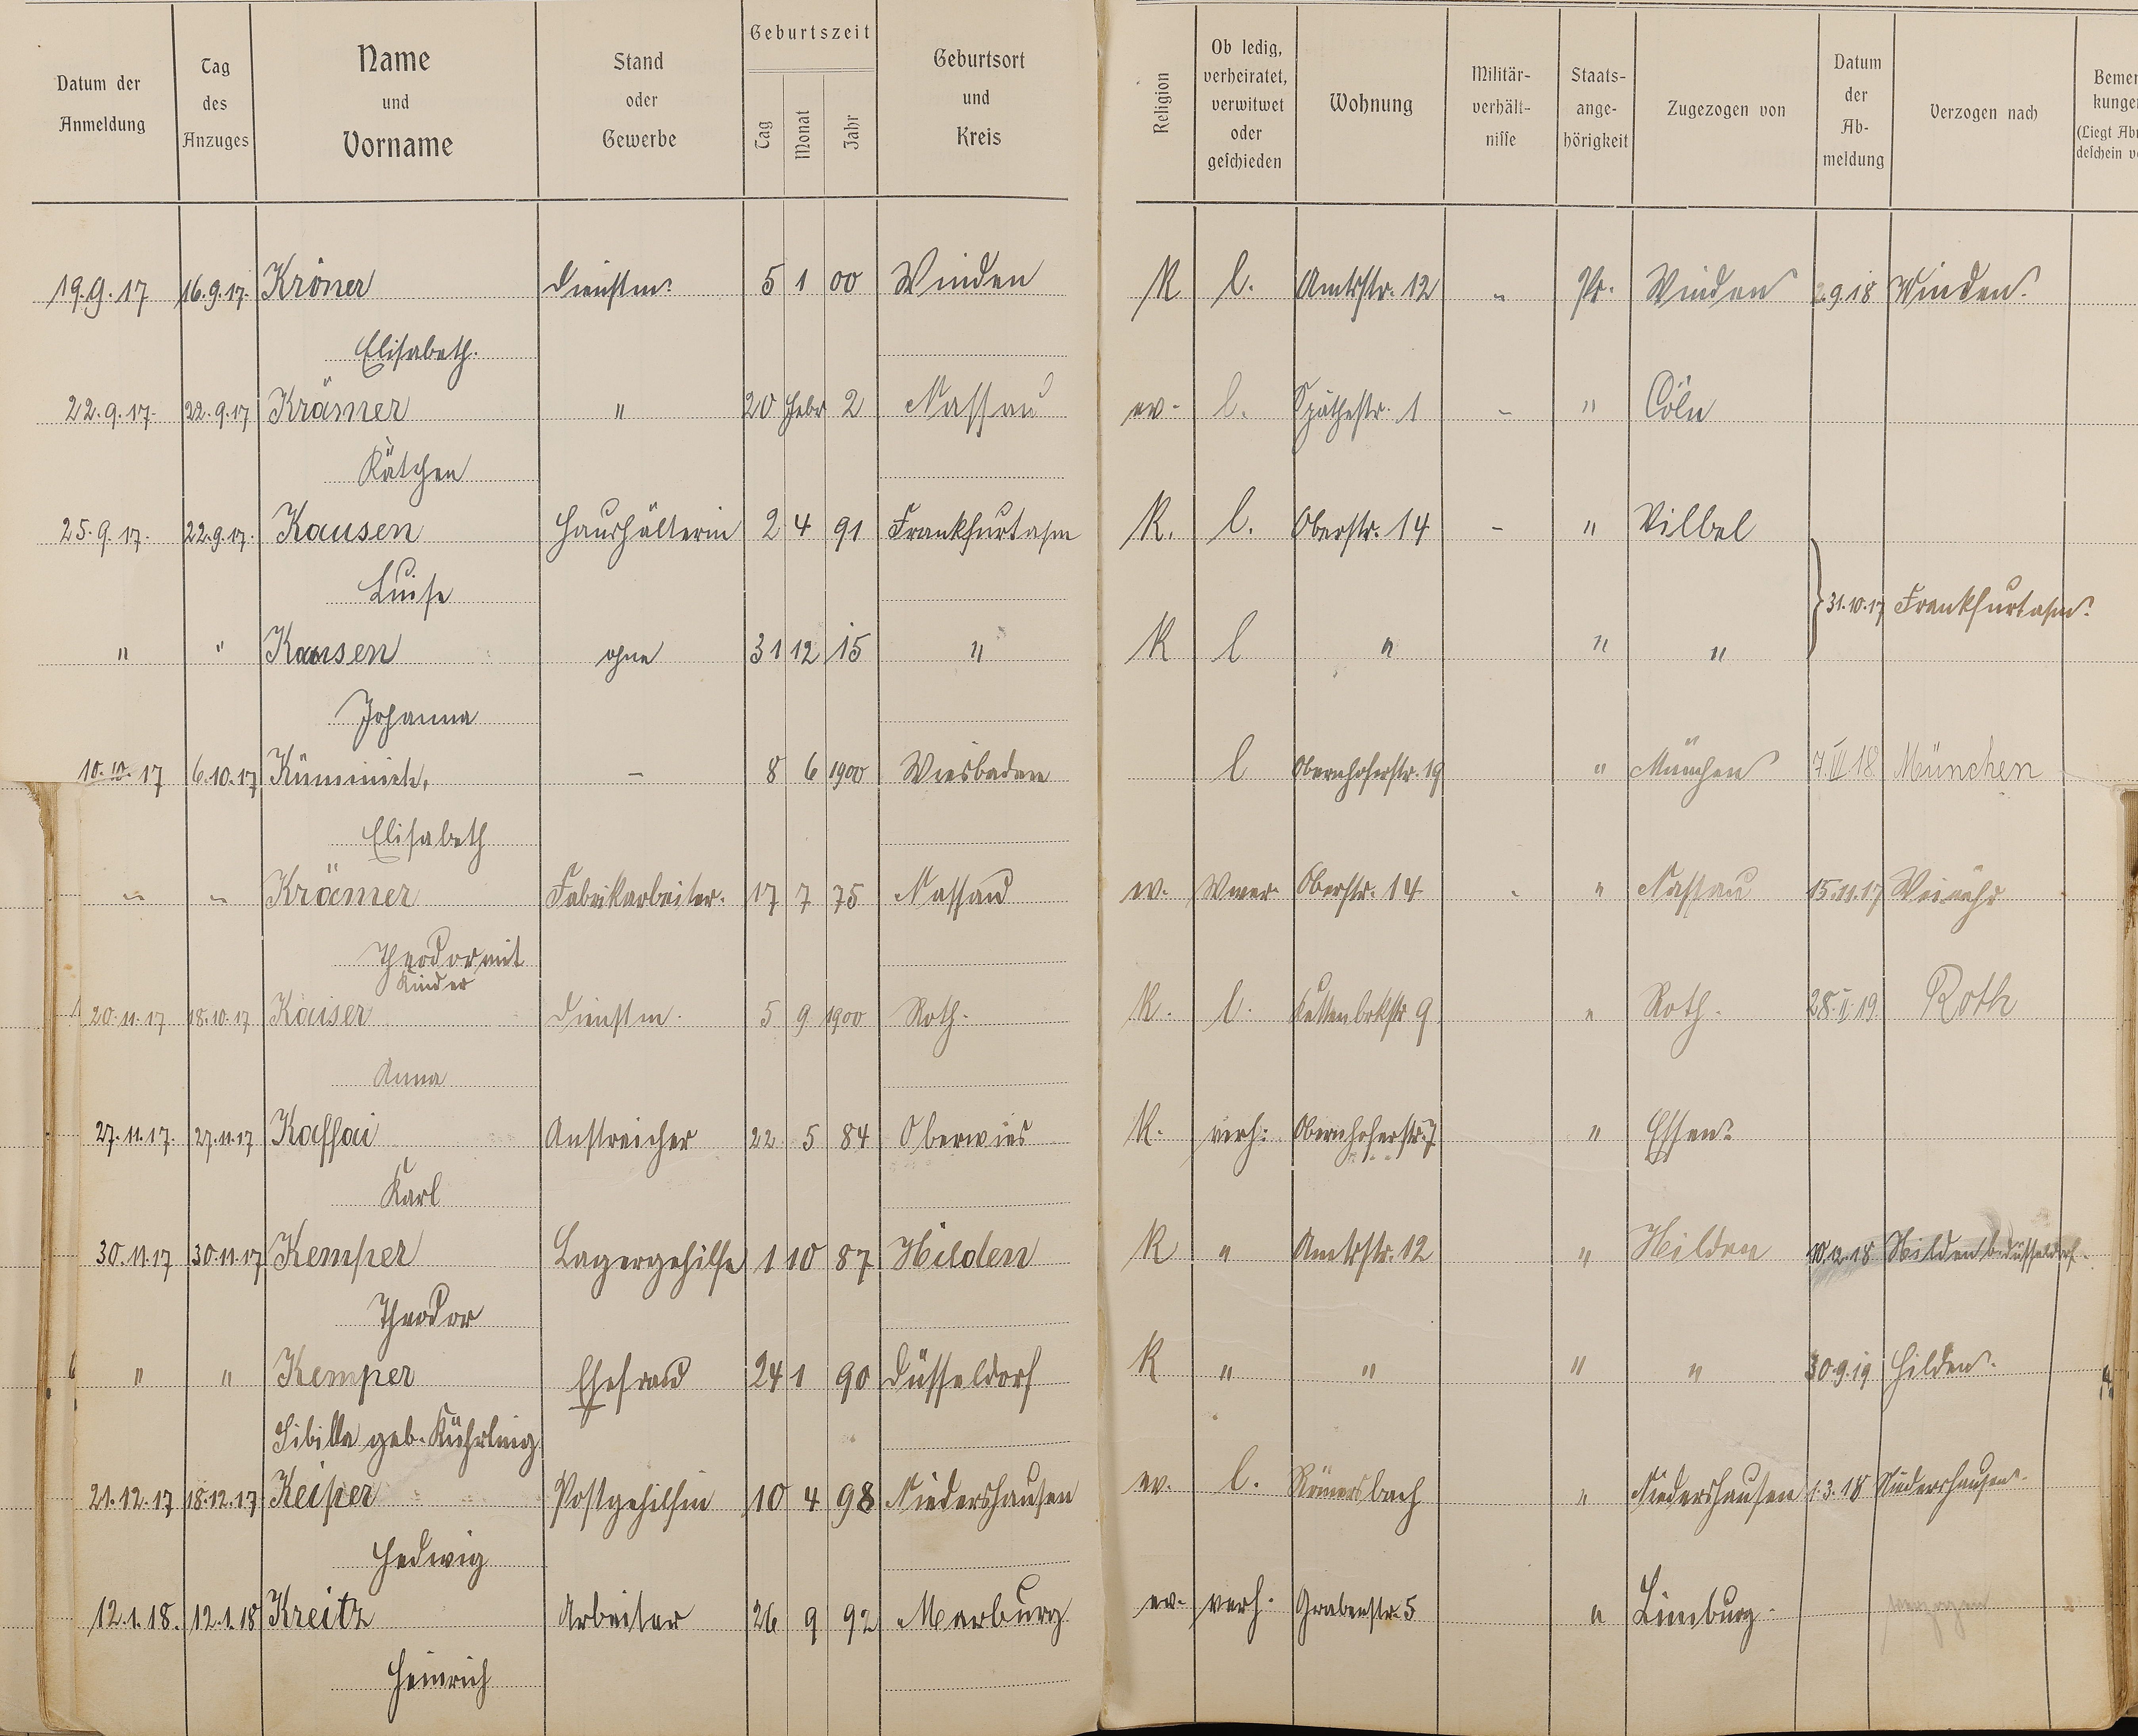 Datum der Anmeldung | Tag des Anzuges | Name und Vorname | Stand oder Gewerbe | Geburtszeit Tag Monat Jahr | Geburtsort und Kreis | Religion | Ob ledig, verheiratet, verwitwet oder geschieden | Wohnung | Militär-verhält-nisse | Staats-ange-hörigkeit | Zugezogen von | Datum der Ab-meldung | Verzogen nach | Bemer kunge (Liegt Ab deschein v
19.9.17 16.9.17. Kröner Dienstm. 5 1 00 Winden K l. Amtsstr. 12 " Pr. Winden 2.9.18 Winden.
Elisabeth.
22.9.17. 22.9.17 Krämer " 20 Febr 2 Nassau ev. l. Späthestr. 1 - " Cöln
Kätchen
25.9.17. 22.9.17. Kausen Haushälterin 2 4 91 Frankfurt a/m K. l. Oberstr. 14 - " Vilbel
Luise
} 31.10.17 Frankfurt a/m.
" " Kausen ohne 31 12 15 " K l " " "
Johanna
10.10.17 6.10.17 Kümmich, – 8 6 1900 Wiesbaden l Obernhoferstr. 19 " München 7.III.18. München
Elisabeth
" " Krämer Fabrikarbeiter. 17 7 75 Nassau ev. Wwer Oberstr. 14 - " Nassau 15.11.17 Weinähr
Theodor mit
Kinder
20.11.17 18.10.17 Kaiser Dienstm. 5 9 1900 Roth. K. l. 9 " Roth. 28.II.19. Roth
Anna
27.11.17. 27.11.17 Kaffai Anstreicher 22 5 84 Oberwies K. verh: Obernhoferstr. 7 " Essen.
Karl
30.11.17 30.11.17 Kemper Lagergehilfe 1 10 87 Hilden K " Amtsstr. 12 " Hilden 10.12.18 Hilden b. Düsseldorf.
Theodor
" " Kemper Ehefrau 24 1 90 Düsseldorf K " " " " 30.9.19 Hilden.
Sibilla geb. Kührling
21.12.17 18.12.17 Keiper Postgehilfin 10 4 98 Niedershausen ev. l. Römersbach " Niedershausen 1.3.18 Niedershausen.
Hedwig
12.1.18. 12.1.18 Kreitz Arbeiter 26 9 92 Marburg ev. verh. Grabenstr. 5 " Limburg. verzogen
Heinrich